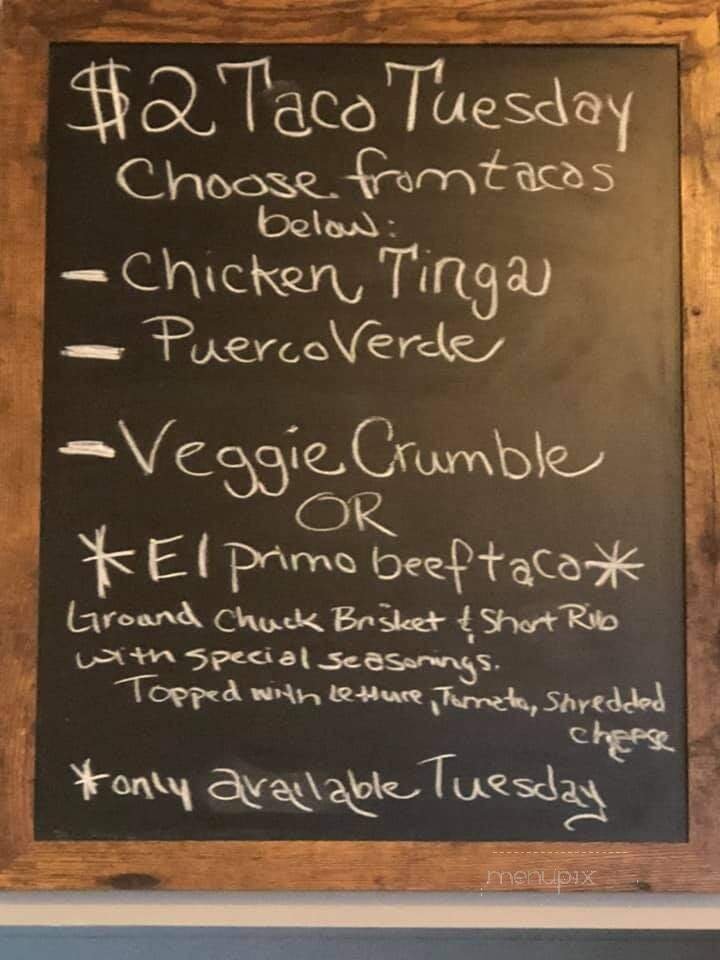 $2 Taco Tuesday
Choose from tacos
below:
- Chicken Tinga
- Puerco Verde
- Veggie Crumble
OR
*El primo beef taco*
Ground Chuck Brisket & Short Rib
with special seasonings.
Topped with Letture, Tomato, Shredded
cheese
*only available Tuesday
menupix